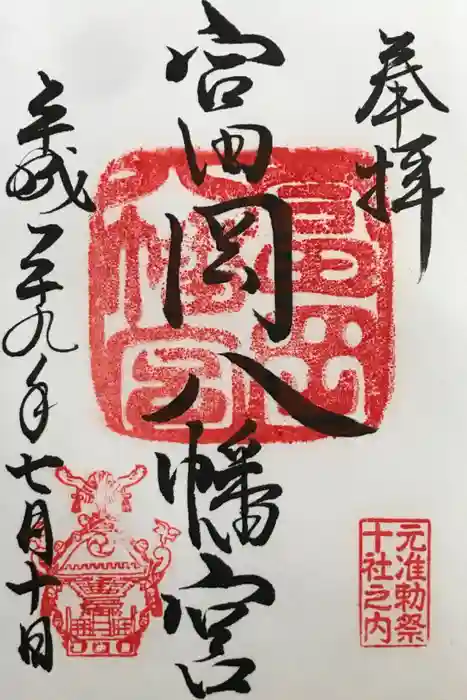 奉拝
富岡八幡宮
平成二十九年七月十日
富岡
八幡宮
元准勅祭
十社之内